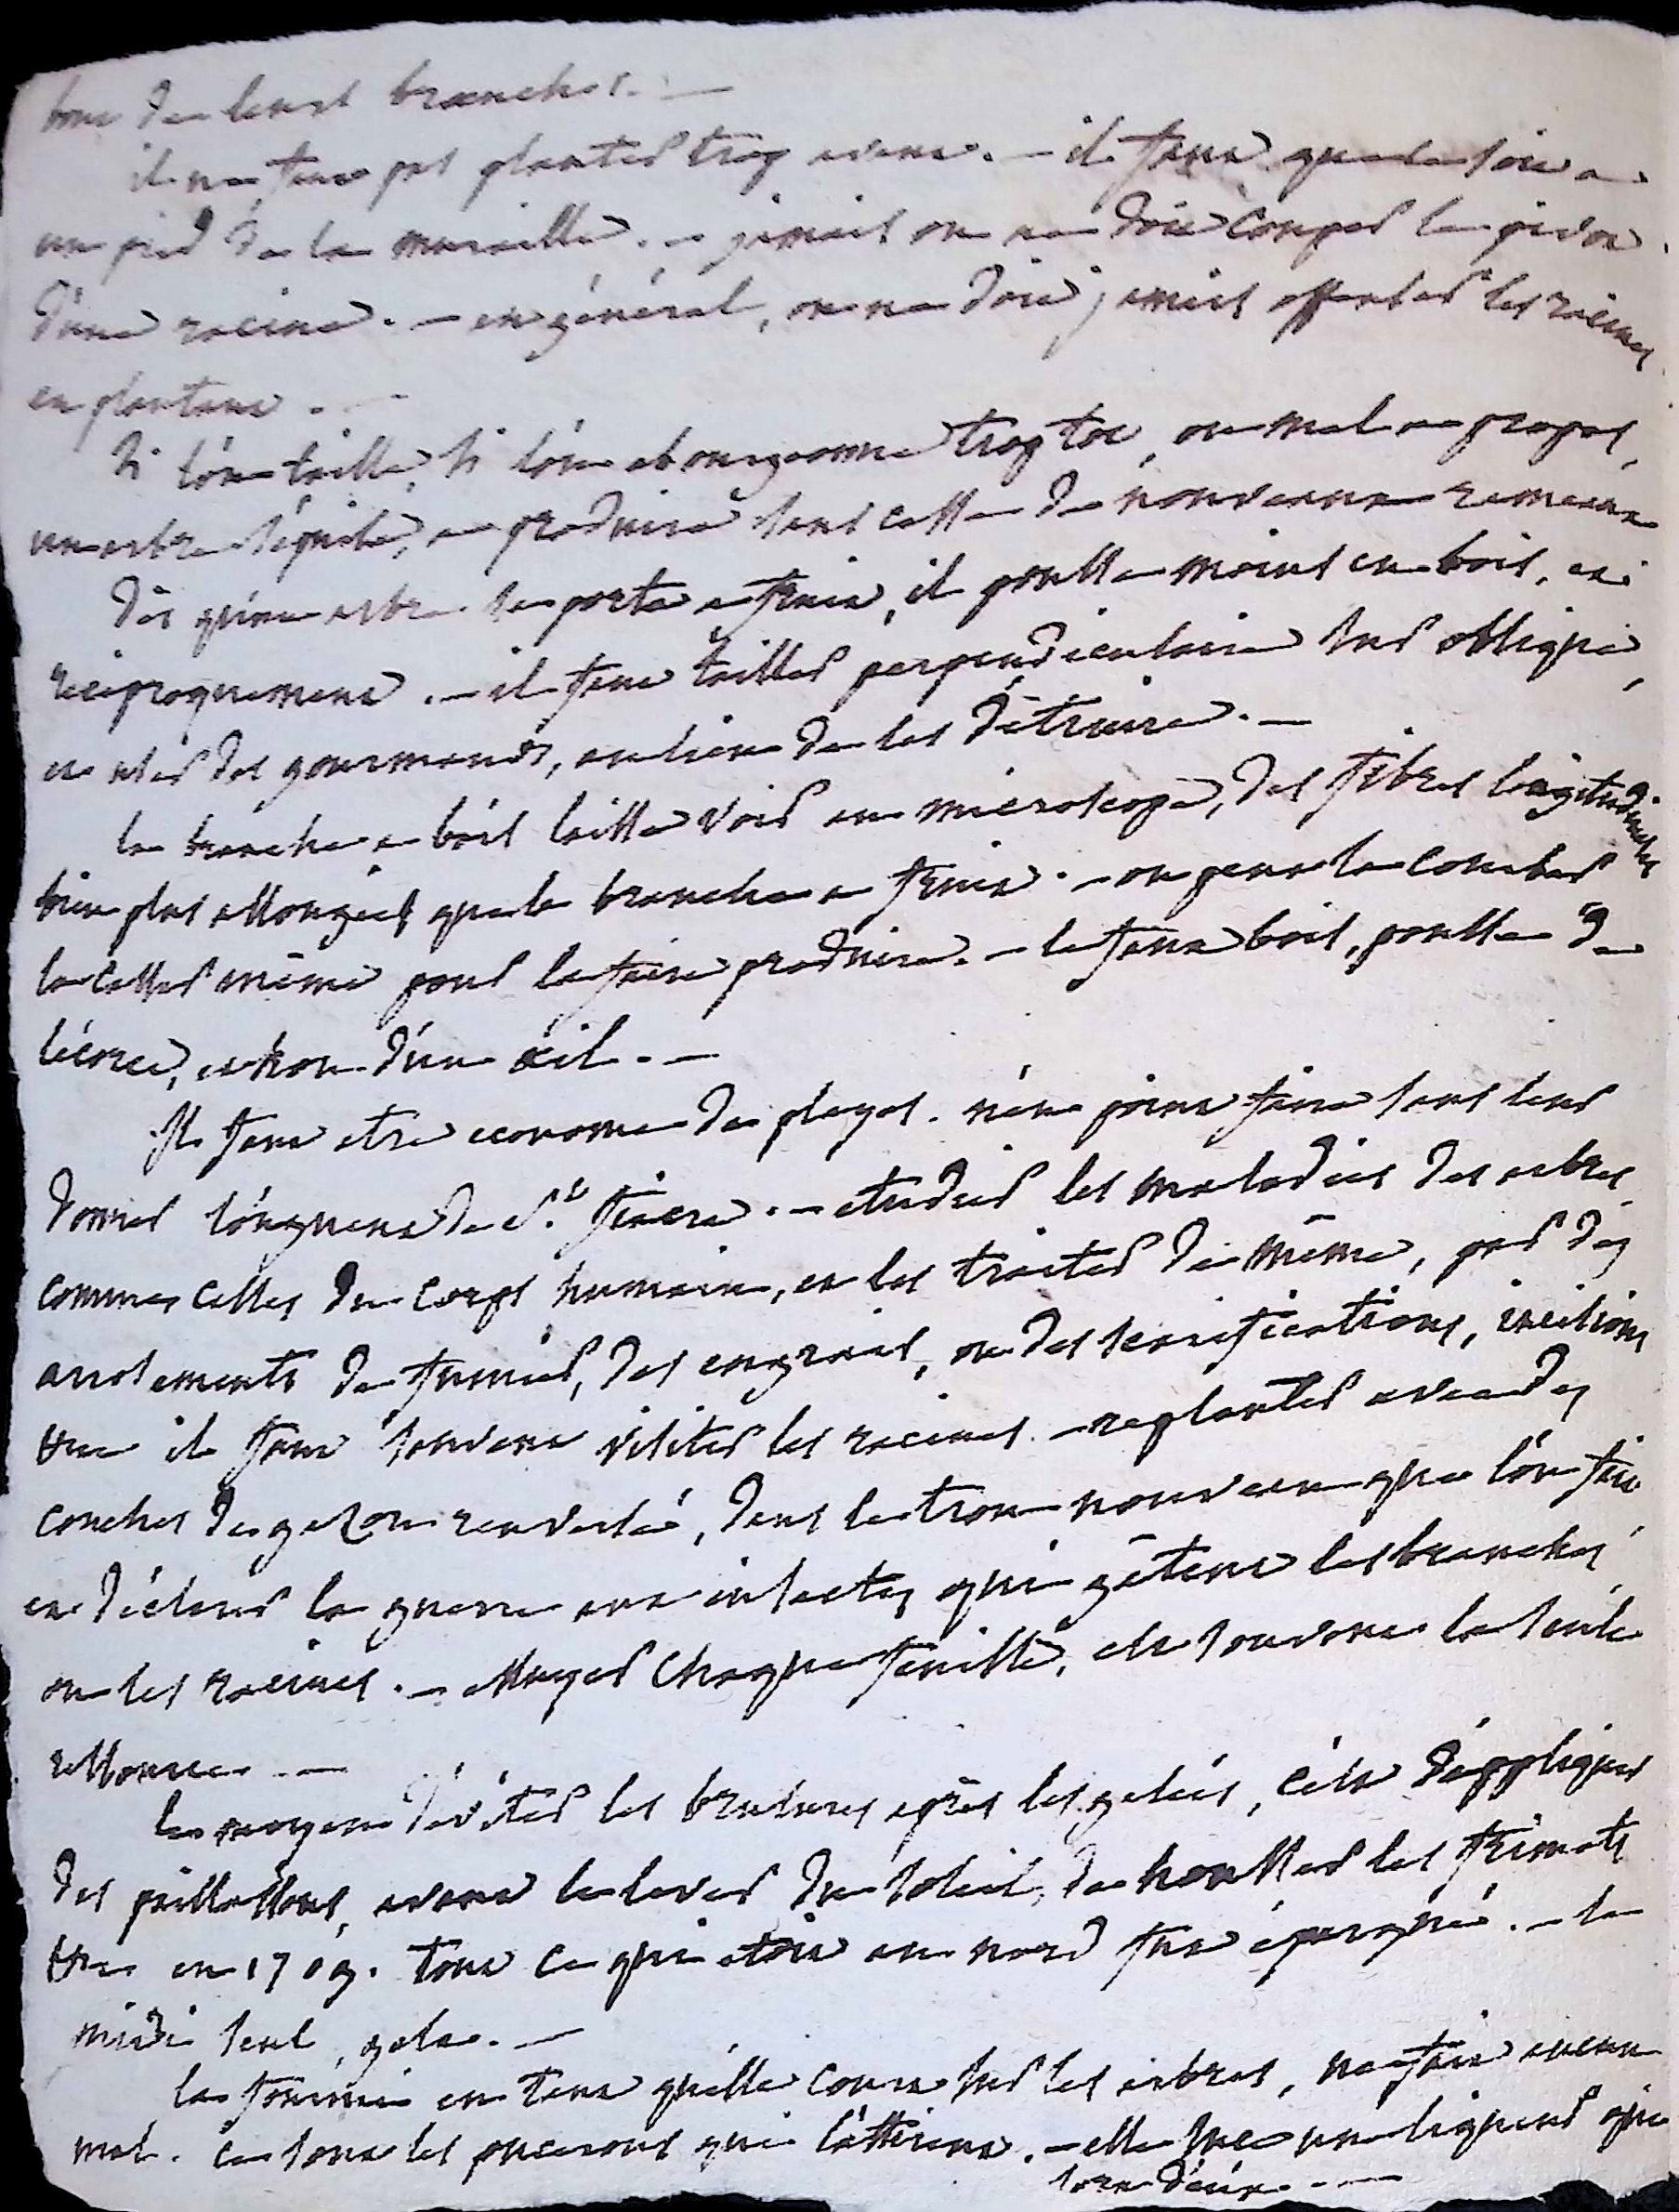 bout de leurs branches. —
il ne faut pas planter trop avant. — il faut que ce soit a
un pied de la muraille. — jamais on ne doit couper le pivot
d'une racine. — en général, on ne doit jamais offenser les racines
en plantant. —
si l'on taille, si l'on ebourgeonne trop tot, ou mal a propos,
un arbre s'epuise, a produire sans cesse de nouveaux rameaux
dès qu'un arbre se porte a fruit, il pousse moins en bois, et
réciproquement. — il faut tailler perpendiculaire sur oblique,
et user des gourmands, au lieu de les détruire. —
la branche a bois laisse voir au microscope, des fibres longitudinales
bien plus allongées que la branche a fruit. — on peut la courber
la casser même pour la faire produire. — le faux bois, pousse de
l'écorce, et non d'un œil. —
Il faut etre econome de playes. n'en point faire sans leur
donner l'onguent de St. fiacre. — etudier les maladies des arbres
comme celles du corps humain, et les traiter de même, par des
arrosements de fumier, des engrais, ou des scarifications, incisions
&c. il faut souvent visiter les racines. — replanter avec des
couches de gazon renversé, dans le trou nouveau que l'on fait
et déclarer la guerre aux insectes qui gâtent les branches
ou les racines. — essuyer chaque feuille, est souvent la seule
ressource. —
le moyen d'éviter les brulures après les gelées, c'est d'appliquer
des paillassons, avant le lever du soleil, de housser les frimats
&c. en 1709. tout ce qui etoit au nord fut épargné. — le
midi seul, gela. —
la fourmi en tant qu'elle court sur les arbres, ne fait aucun
mal. ce sont les pucerons qui l'attirent. — elle suce une liqueur qui
sort d'eux. —